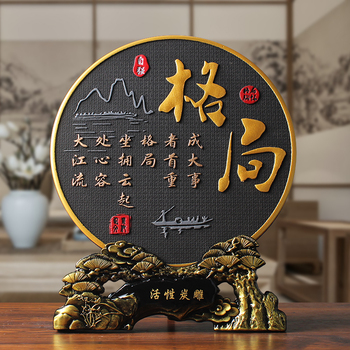 格局
成大事
者首重
格局
坐拥云起
处心容
大江流
活性炭雕